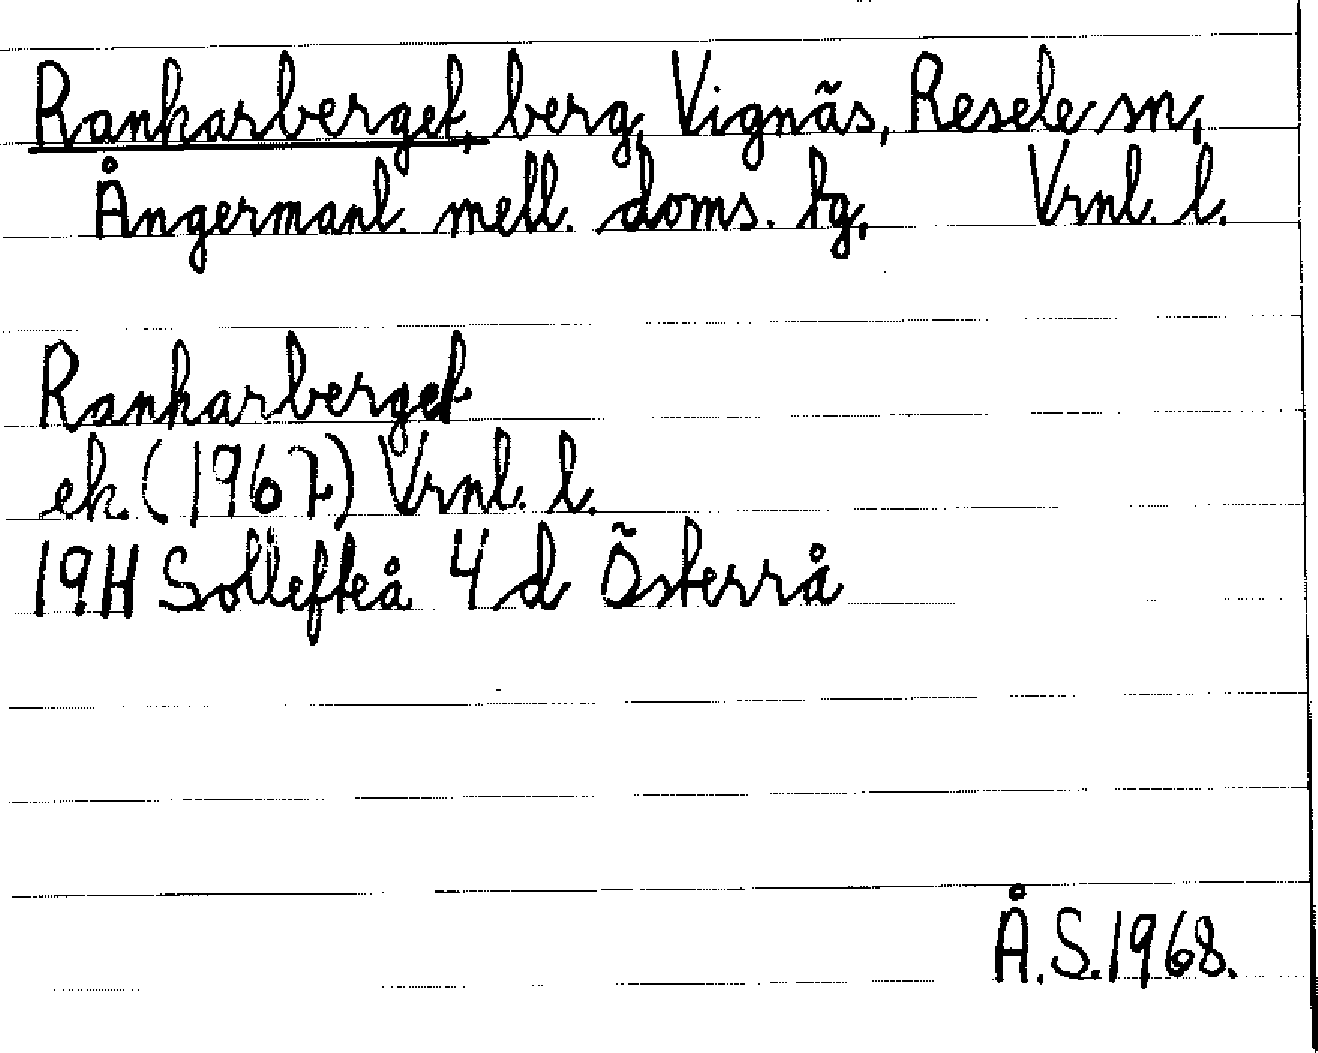 Rankarberget, berg, Vignäs, Resele sn,
Ångermanl. mell. doms. tg, Vrnl. l.
Rankarberget
ek. (1967) Vrnl. l.
19H Sollefteå 4d Österrå
Å.S.1968.